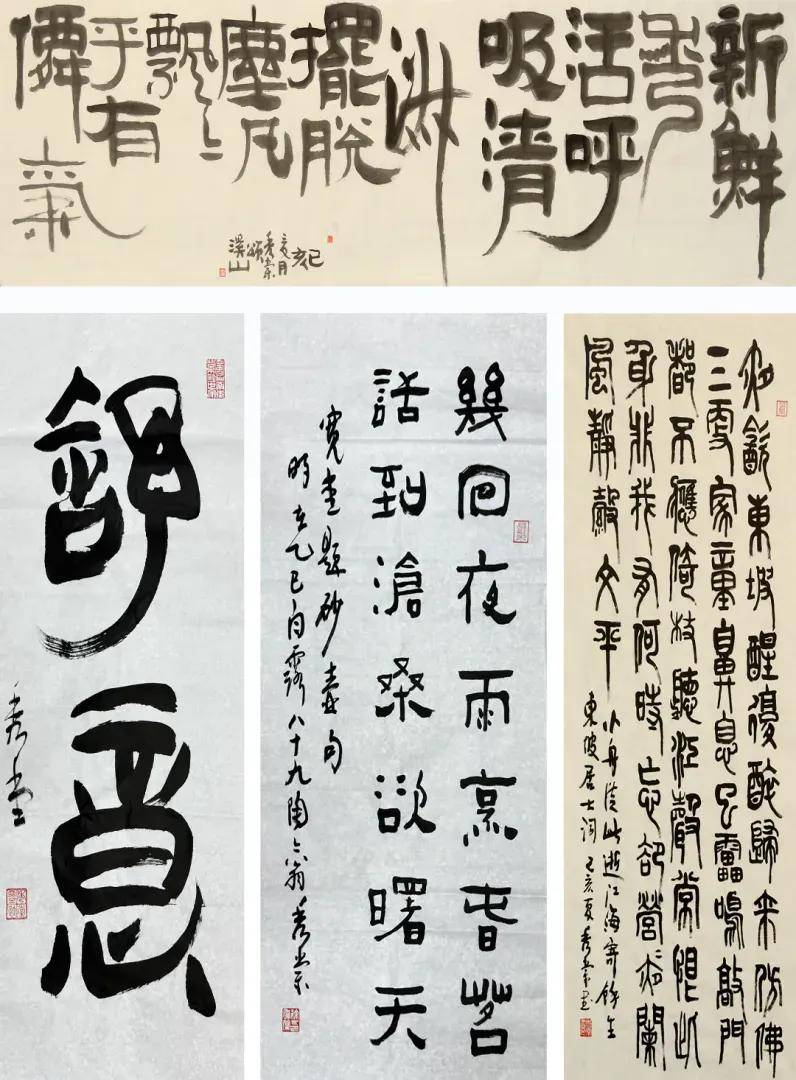 新鮮
秀
活呼
吸清
淑
擺脫
塵凡
飄〻
乎有
僊氣
己亥
舒意
幾回夜雨烹春茗
話到滄桑欲曙天
寬堂題砂壺句
時在乙巳白露八十九陶六翁秀棠
夜飲東坡醒復醉歸來仿佛
三更家童鼻息已靁鳴敲門
都不應倚杖聽江聲常恨此
身非我有何時忘卻營夜闌
風靜縠文平
小舟從此逝江海寄餘生
東坡居士詞 己亥夏秀棠書